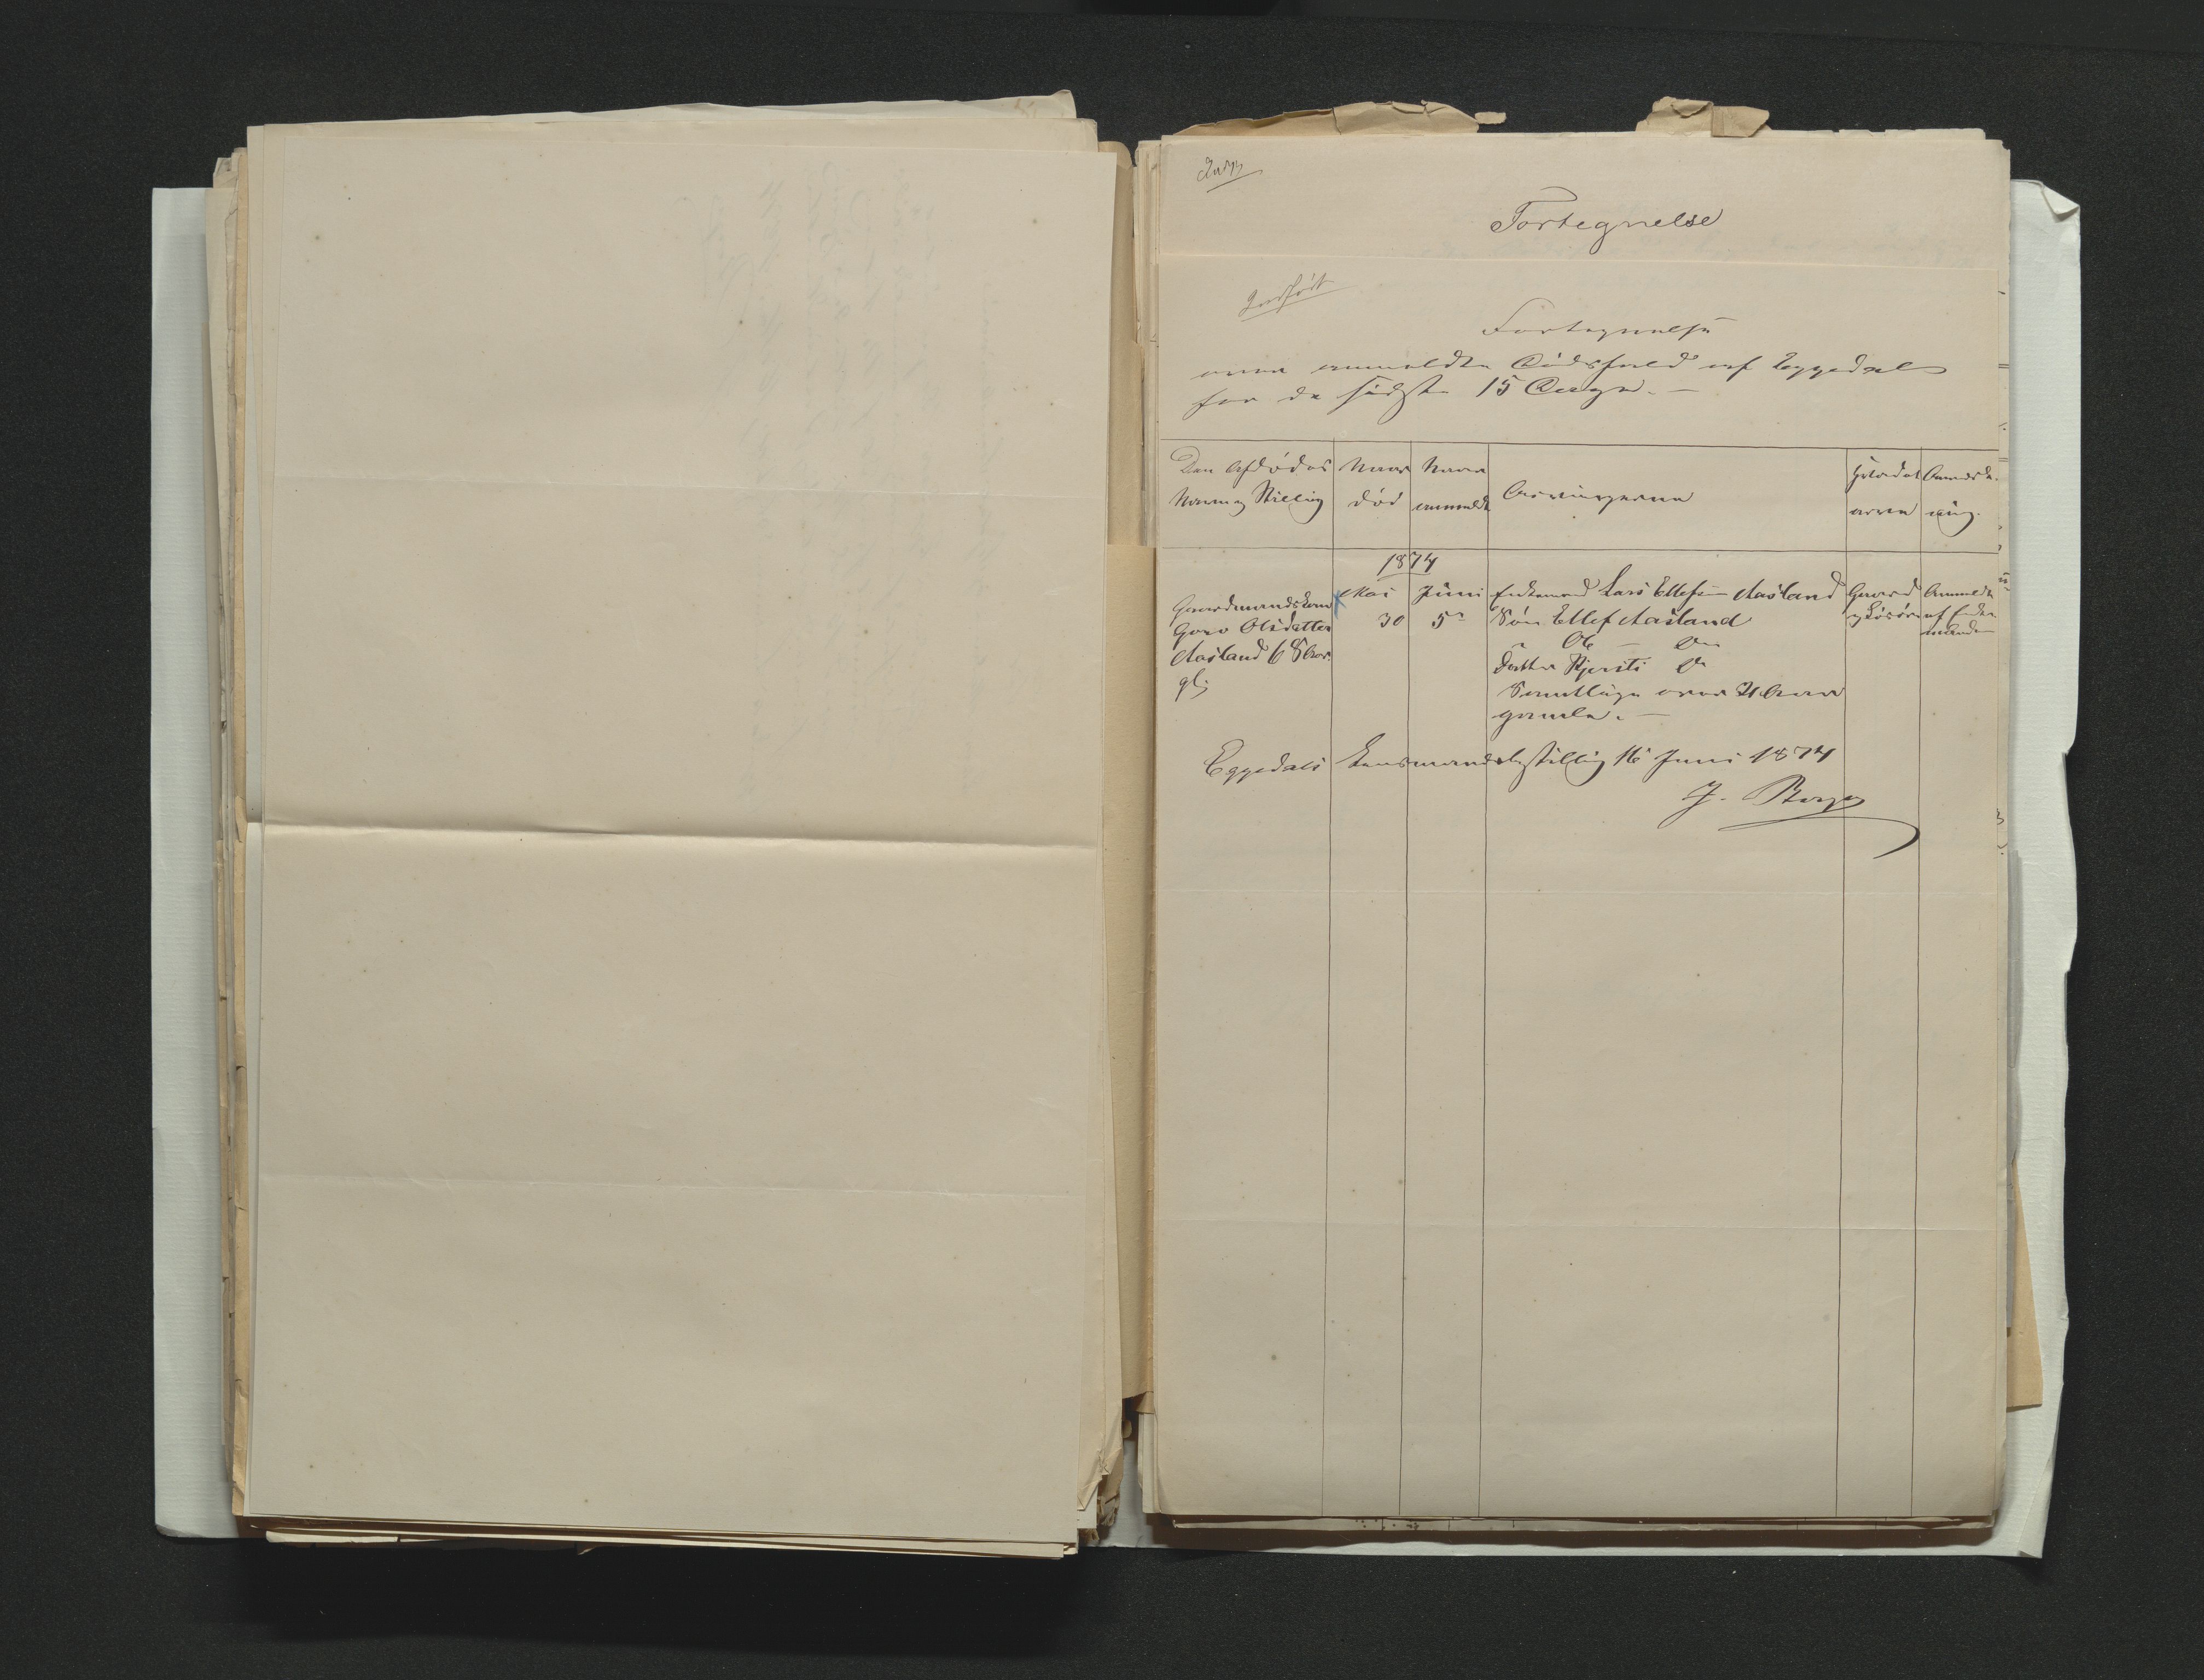 Fortegnelse
Indført
Fortegnelse
over anmeldte Dødsfald af Eggedal
for de sidste 15 Dage. —
Den Afdødes Navn og Stilling | Naar død | Naar anmeldt | Arvingerne | Anmærkning.
1874
Gaardmandskone Goro Olsdatter Aasland 68 Aar gl; | Mai 30 | Juni 5 | Enkemand Lars Ellefsen Aasland | Gaard og Løsøre | Anmeldt af Enkemanden
Søn Ellef Aasland
" Ole — Do
Datter Kjersti Do
Samtlige over 21 Aar
gamle. —
Eggedals Lensmandsbestilling 16 Juni 1874